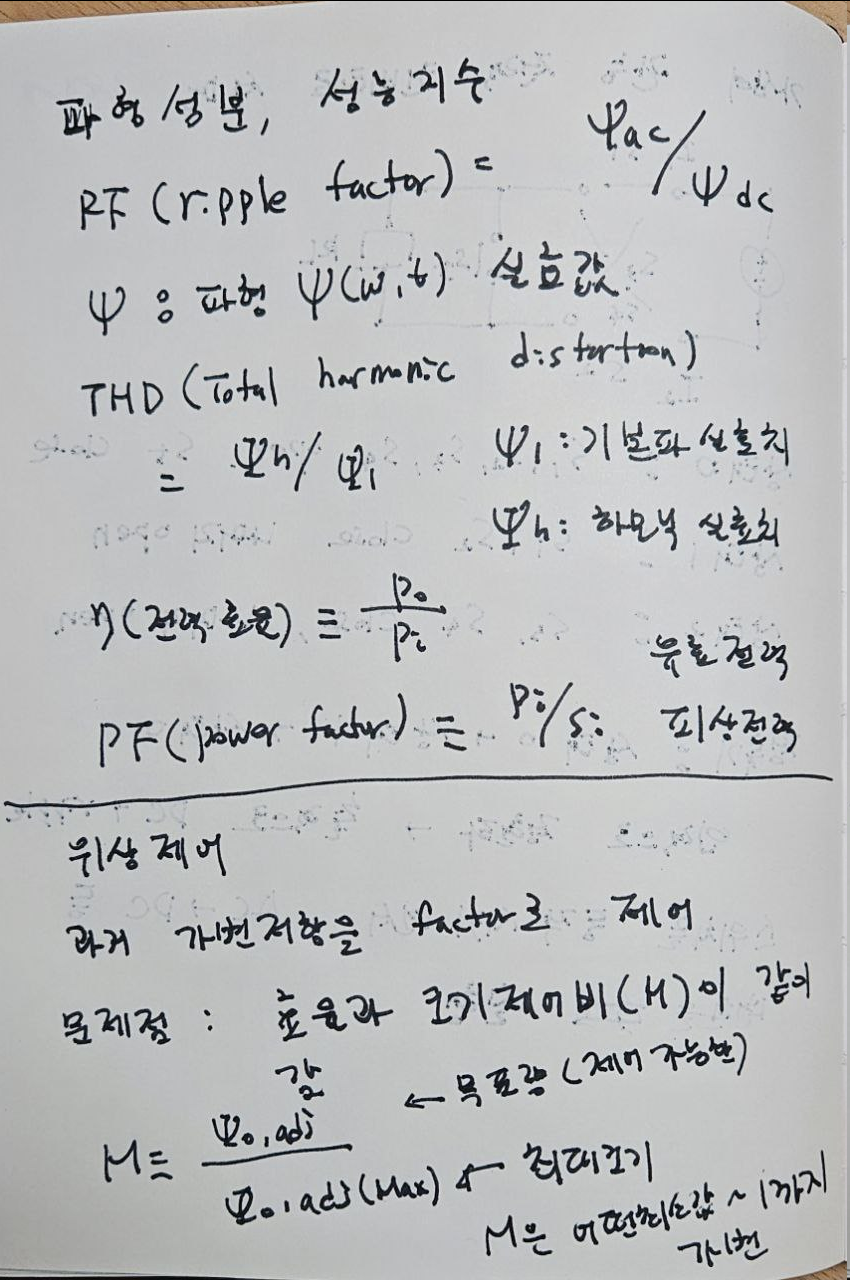 파형성분, 성능지수
RF (ripple factor) = Ψac/Ψdc
Ψ : 파형 Ψ(w,t) 실효값
THD (Total harmonic distortion)
= Ψh/Ψ1 Ψ1 : 기본파 실효치
Ψh : 하모닉 실효치
η(전력효율) ≡ Po/Pi
유효전력
PF (power factor) ≡ Pi/Si 피상전력
위상제어
과거 가변저항을 factor로 제어
문제점 : 효율과 크기제어비(M)이 같이
감
← 목표량 (제어 가능한)
M ≡ Ψo,adj / Ψo,adj(Max) ← 최대크기
M은 어떤최소값 ~ 1까지
가변